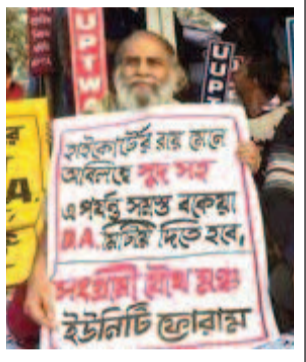 UPTWO
UUPT
A.
হাইকোর্টের রায় মেনে
অবিলম্বে সুদ সহ
এ পর্যন্ত সমস্ত বকেয়া
D.A. মিটিয়ে দিতে হবে,
সংগ্রামী যৌথ মঞ্চ
ইউনিটি ফোরাম